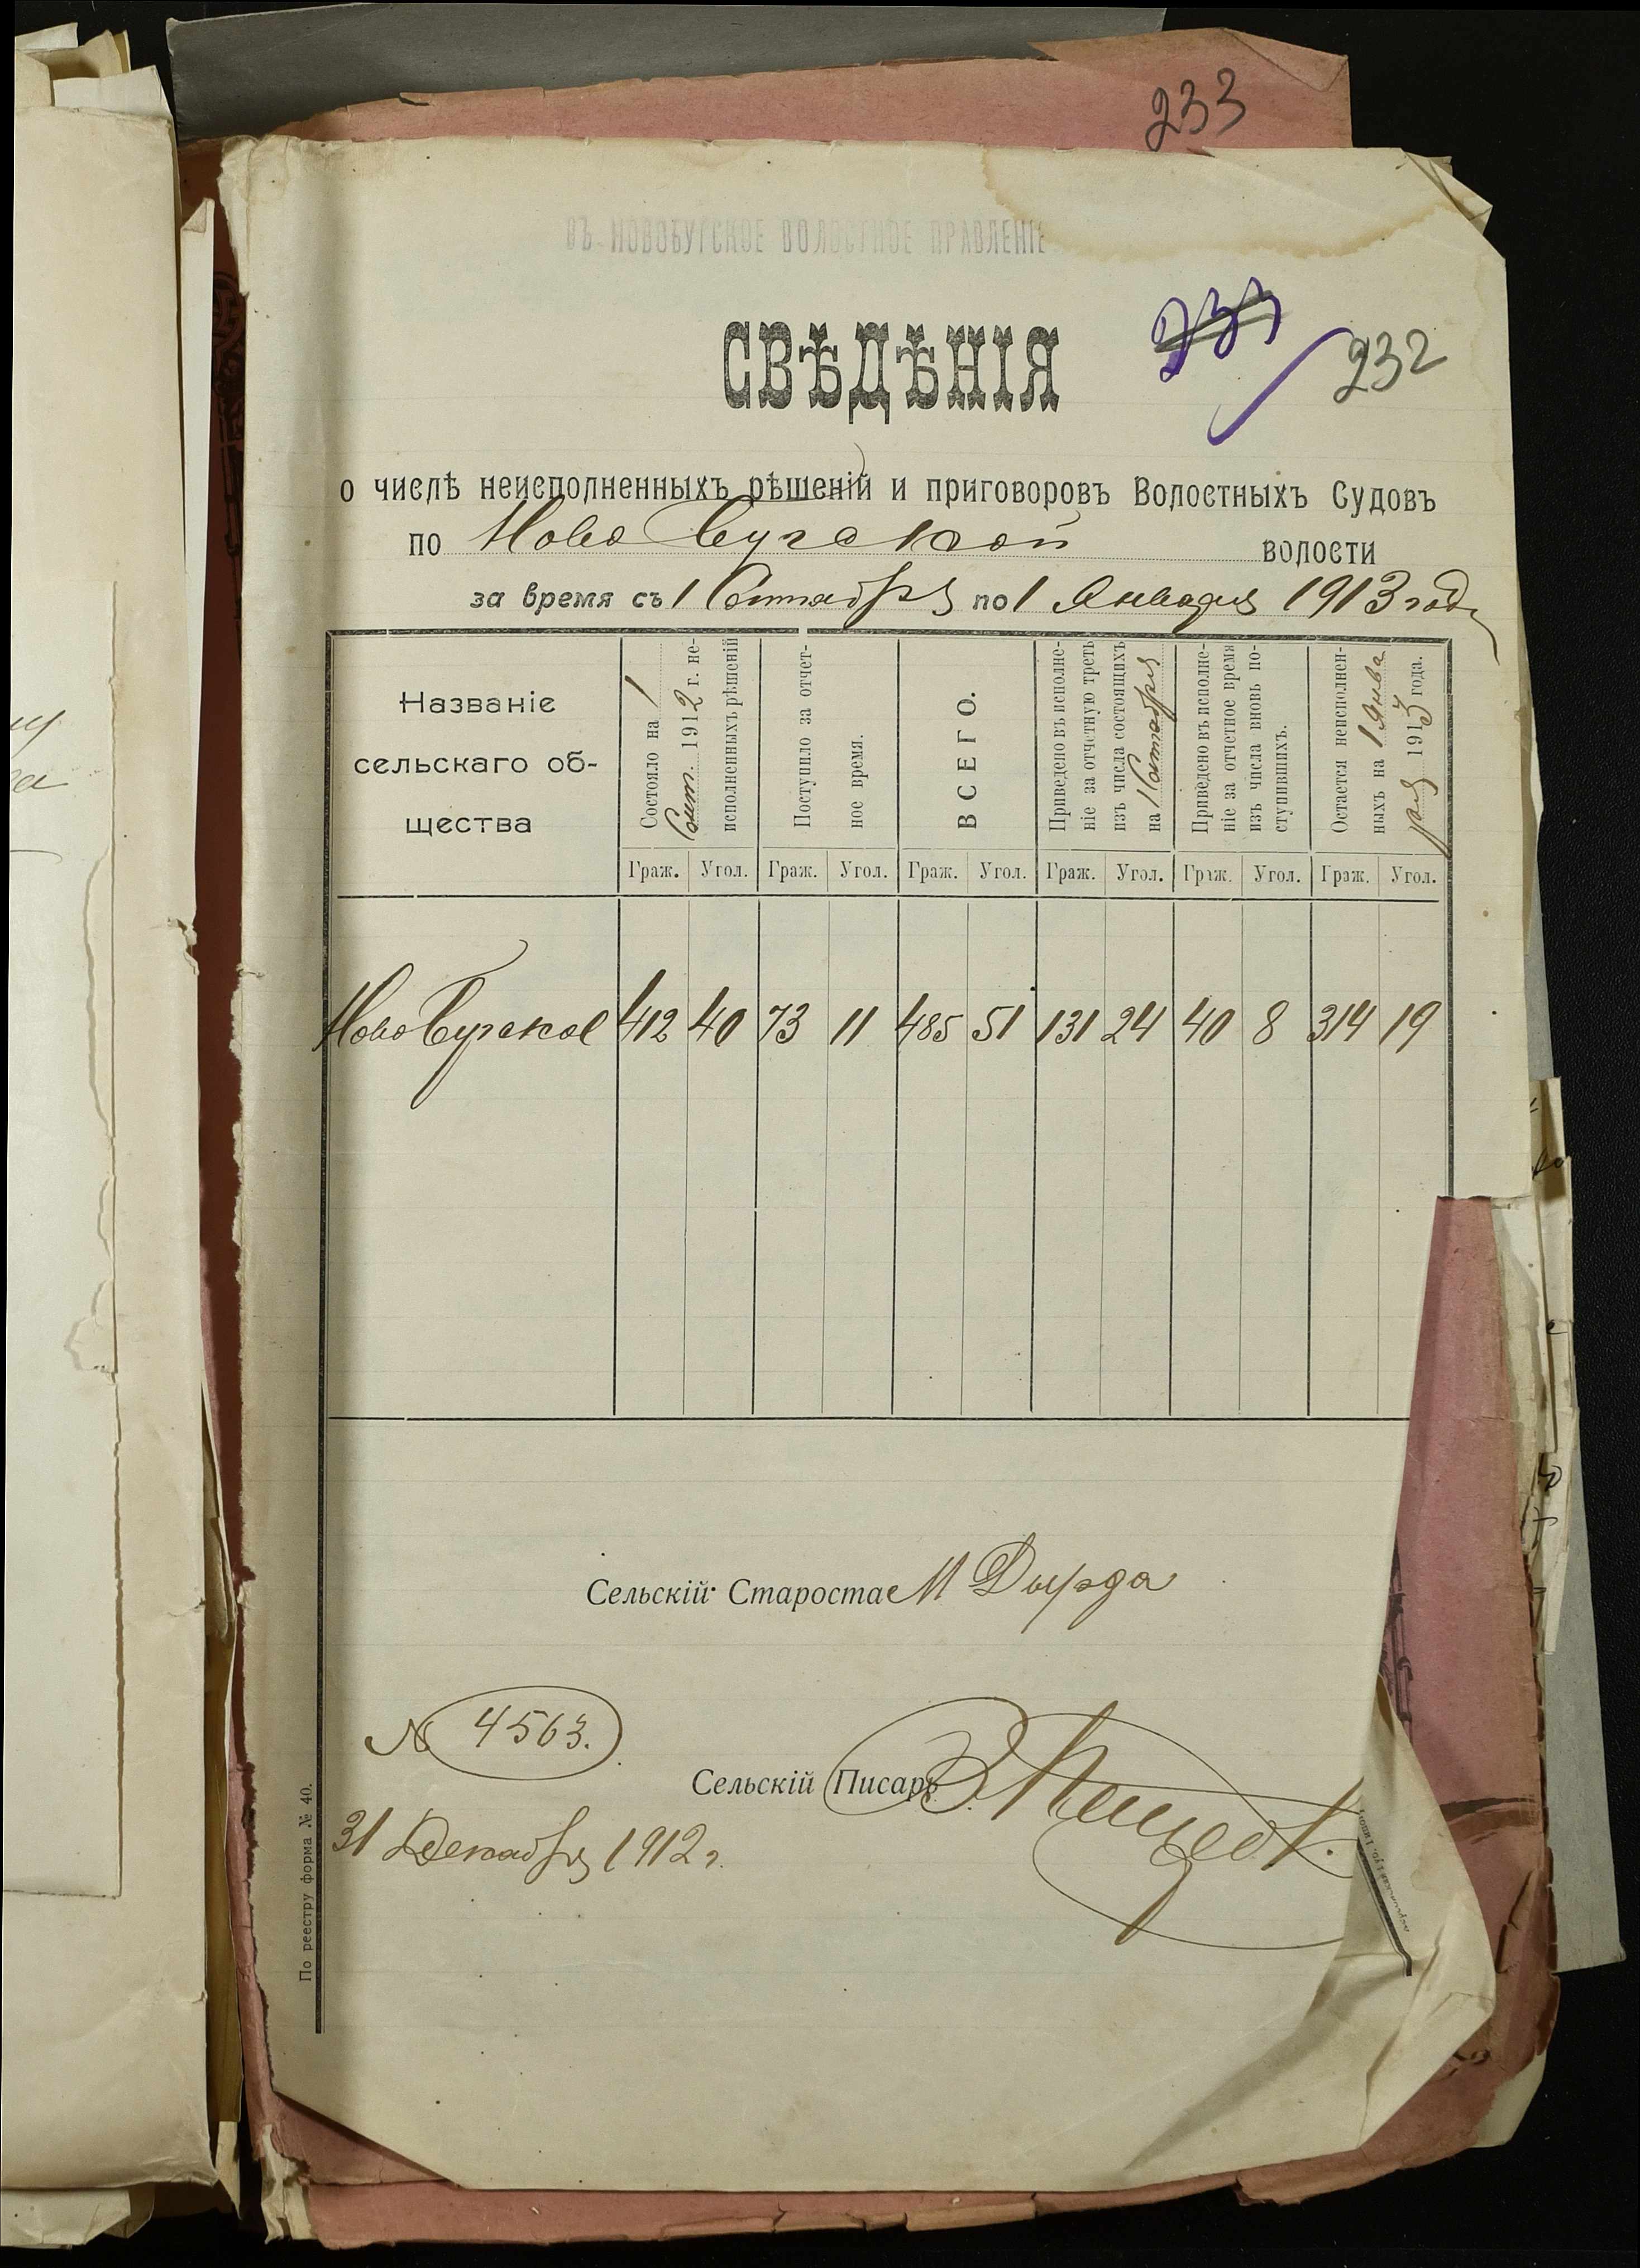 233
ВЪ НОВОБУГСКОЕ ВОЛОСТНОЕ ПРАВЛЕНІЕ
СВѢДѢНІЯ
232
о числѣ неисполненныхъ рѣшеній и приговоровъ Волостныхъ Судовъ
по Ново Бугской волости
за время съ 1 Сентября по 1 Января 1913 года
Названіе
сельскаго об-
щества
Состояло на 1
Сент. 1912 г. не-
исполненныхъ рѣшеній
Поступило за отчет-
ное время.
ВСЕГО.
Приведено въ исполне-
ніе за отчетную треть
изъ числа состоящихъ
на 1 Сентября
Приведено въ исполне-
ніе за отчетное время
изъ числа вновь по-
ступившихъ.
Остается неисполнен-
ныхъ на 1 Янва
ря 1913 года.
Граж. Угол. Граж. Угол. Граж. Угол. Граж. Угол. Граж. Угол. Граж. Угол.
Ново Бугское 412 40 73 11 485 51 131 24 40 8 314 19
Сельскій Староста М Дырда
№ 4563.
Сельскій Писарь
31 Декабря 1912 г.
По реестру форма № 40.